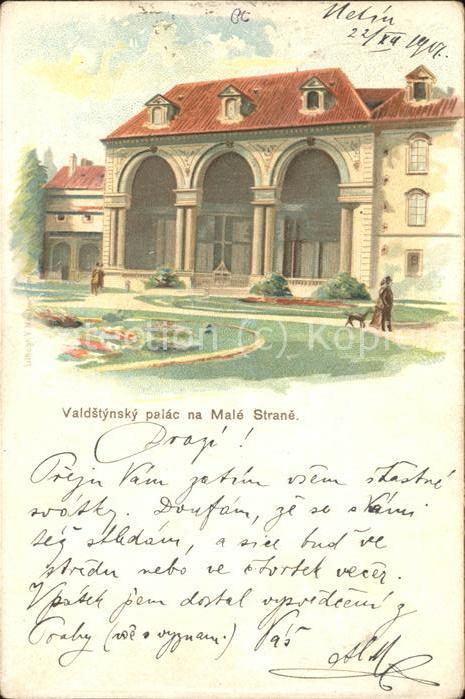 Vsetín
22/XII 1901.
Valdštýnský palác na Malé Straně.
Drazí!
Přeju Vám zatím všem šťastné
svátky. Doufám, že se s Vámi
též shledám, a sice buď ve
středu nebo ve čtvrtek večer.
V pátek jsem dostal vysvědčení z
Prahy (vše s vyznam.) Váš